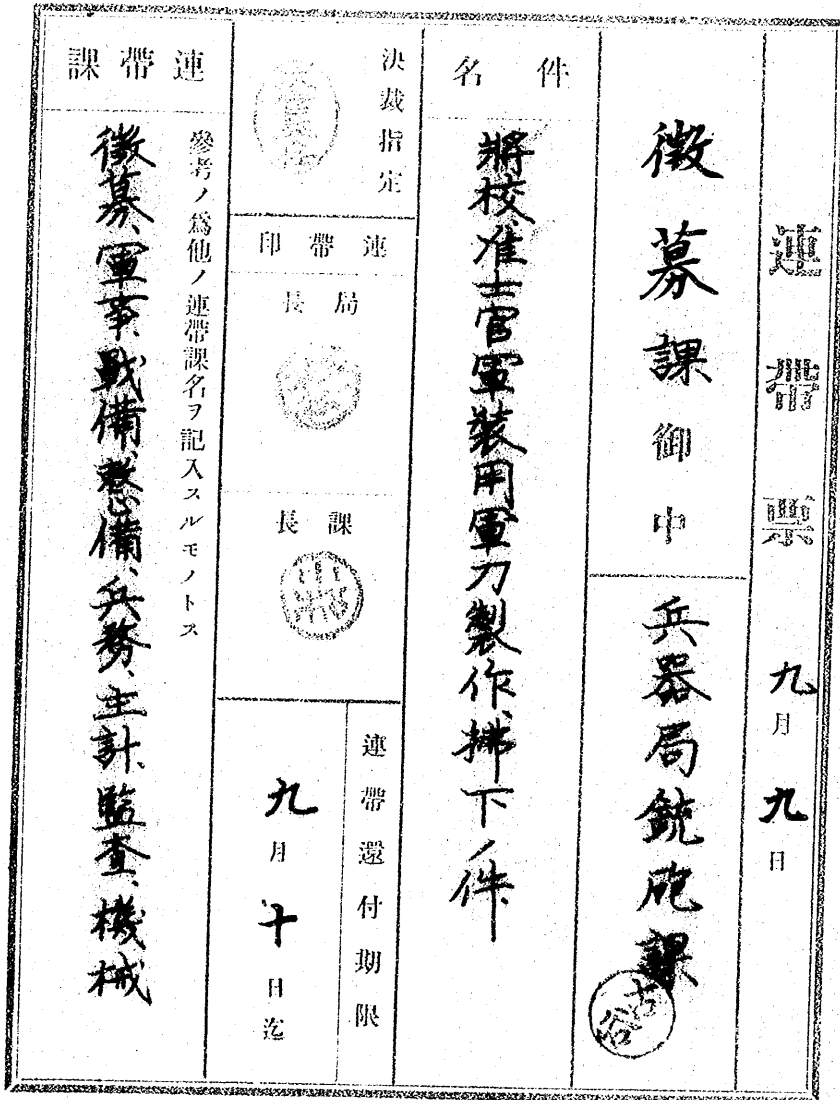 連帶票 九月九日
徴募課御中
兵器局銃砲課
古谷
件名
將校、准士官軍裝用軍刀製作、拂下ノ件
決裁指定
連帶印
局長
課長
連帶還付期限
九月十日迄
連帶課
參考ノ爲他ノ連帶課名ヲ記入スルモノトス
徴募、軍事、戰備、整備、兵務、主計、監査、機械